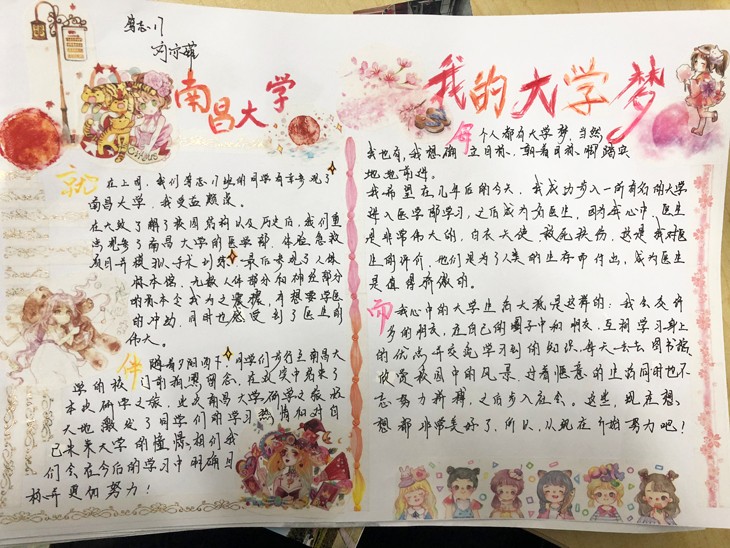 笃志17
南昌大学
就在上周，我们笃志17班的同学有幸参观了
南昌大学，我受益颇深。
在大致了解了校园结构以及历史后，我们重
点观看了南昌大学的医学部，体验急救
项目并模拟手术训练，最后参观了人体
标本馆，无数人体部分和神经部分
的标本令我为之震撼，有想要学医
的冲动，同时也感受到了医生的
伟大。
伴随着夕阳西下，同学们步行至南昌大
学的校门前拍照留念，在欢笑中结束了
本次研学之旅，此次南昌大学研学之旅极
大地激发了同学们的学习热情和对自
己未来大学的憧憬，相信我
们会在今后的学习中明确目
标并更加努力！
我的大学梦
每个人都有大学梦，当然
我也有，我想确立目标，朝着目标，脚踏实
地地前进。
我希望在几年后的今天，我成功步入一所有名的大学
进入医学部学习，之后成为女医生，因为我心中，医生
是非常伟大的，白衣天使，救死扶伤，这是我对医
生的评价，他们是为了人类的生存而付出，成为医生
是值得骄傲的。
而我心中的大学生活大概是这样的：我会交许
多的朋友，在自己的圈子中和朋友，互相学习身上
的优点并交流学习到的知识，每天去去图书馆，
欣赏校园中的风景，过着惬意的生活同时也不
忘努力拼搏，之后步入社会。这些，现在想
想都非常美好了，所以，从现在开始努力吧！